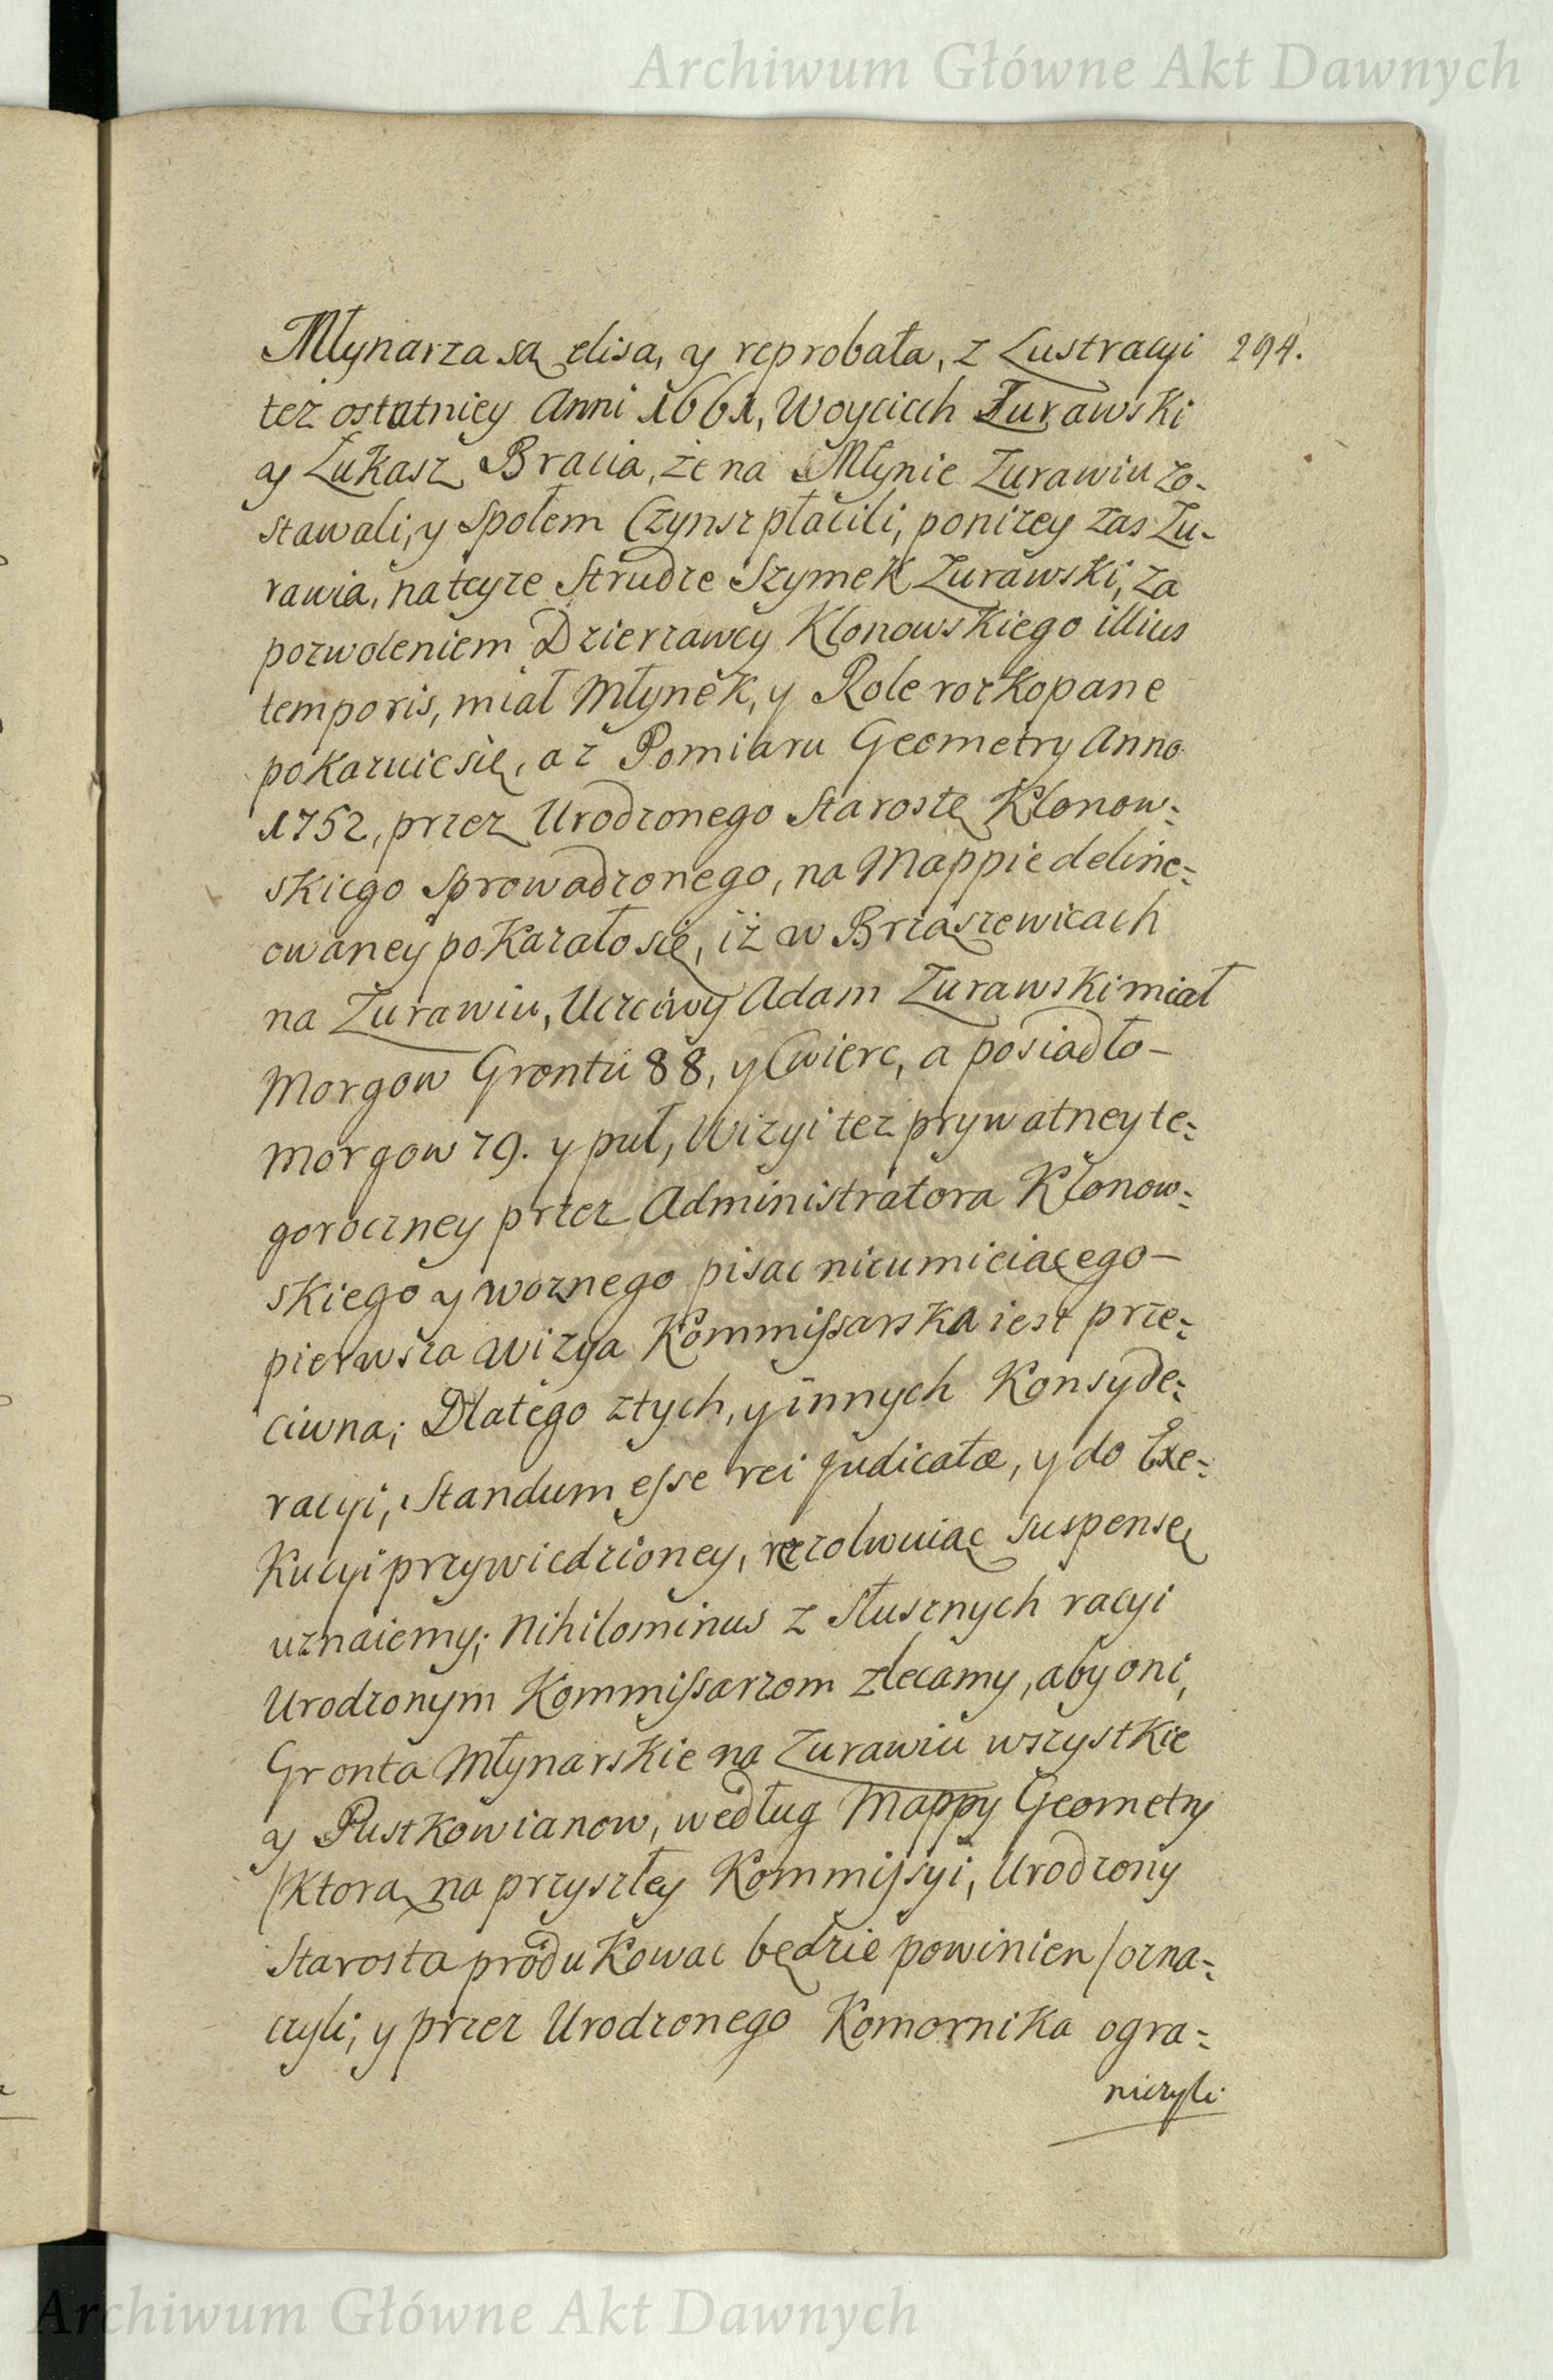 Archiwum Główne Akt Dawnych
Młynarza są elisa, y reprobata, z Lustracyi 294.
też ostatniey Anni 1661, Woyciech Żurawski
y Łukasz Bracia, że na Młynie Zurawiu zo-
stawali, y Społem Czynsz płacili, poniżey zas Żu-
rawia, na teyze Strudze Szymek Zurawski, za
pozwoleniem Dzierzawcy Klonowskiego illius
temporis, miał Młynek, y Role rozkopane
pokazuie się, a z Pomiaru Geometry Anno
1752, przez Urodzonego Starostę Klonow-
skiego Sprowadzonego, na Mappie deline-
owaney pokazało się, iż w Brząszewicach
na Żurawiu, Uczciwy Adam Zurawski miał
Morgow Grontu 88, y Cwierc, a posiadło-
Morgow 79. y puł, Wizyi tez prywatney te-
goroczney przez Administratora Klonow-
skiego y woznego pisac nieumieiącego-
pierwsza Wizya Kommissarska iest prze-
ciwna; Dlatego z tych, y innych Konsyde-
racyi, Standum esse rei judicatæ, y do Exe-
kucyi przywiedzioney, rezolwuiąc suspensę
uznaiemy; Nihilominus z Słusznych racyi
Urodzonym Kommissarzom zlecamy, aby oni,
Gronta Młynarskie na Zurawiu wszystkie
y Pustkowianow, według Mappy Geometry
/Ktorą na przyszłey Kommissyi, Urodzony
Starosta produkowac będzie powinien/ ozna-
czyli, y przez Urodzonego Komornika ogra-
niczyli
Archiwum Główne Akt Dawnych